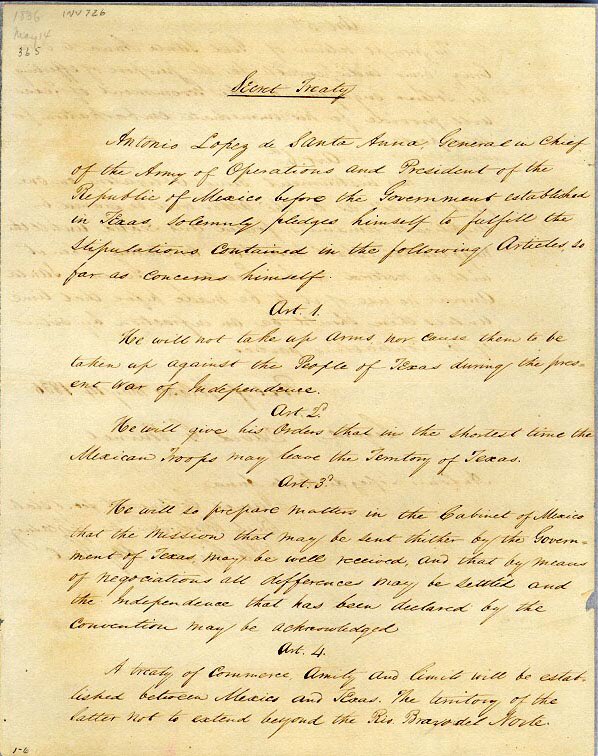 1836
INV 726
May 14
365
Secret Treaty
Antonio Lopez de Santa Anna, General in Chief
of the Army of Operations and President of the
Republic of Mexico, before the Government established
in Texas, solemnly pledges himself to fulfill the
Stipulations contained in the following Articles, so
far as concerns himself.
Art. 1.
He will not take up arms, nor cause them to be
taken up against the People of Texas during the pres-
ent War of Independence.
Art. 2d
He will give his Orders that in the shortest time the
Mexican Troops may leave the Territory of Texas.
Art. 3d
He will so prepare matters in the Cabinet of Mexico
that the Mission that may be sent thither by the Govern-
ment of Texas may be well received, and that by means
of negociations all differences may be settled and
the Independence that has been declared by the
Convention may be acknowledged
Art. 4.
A treaty of Commerce, Amity and limits will be estab-
lished between Mexico and Texas. The territory of the
latter not to extend beyond the Rio Bravo del Norte.
1-6